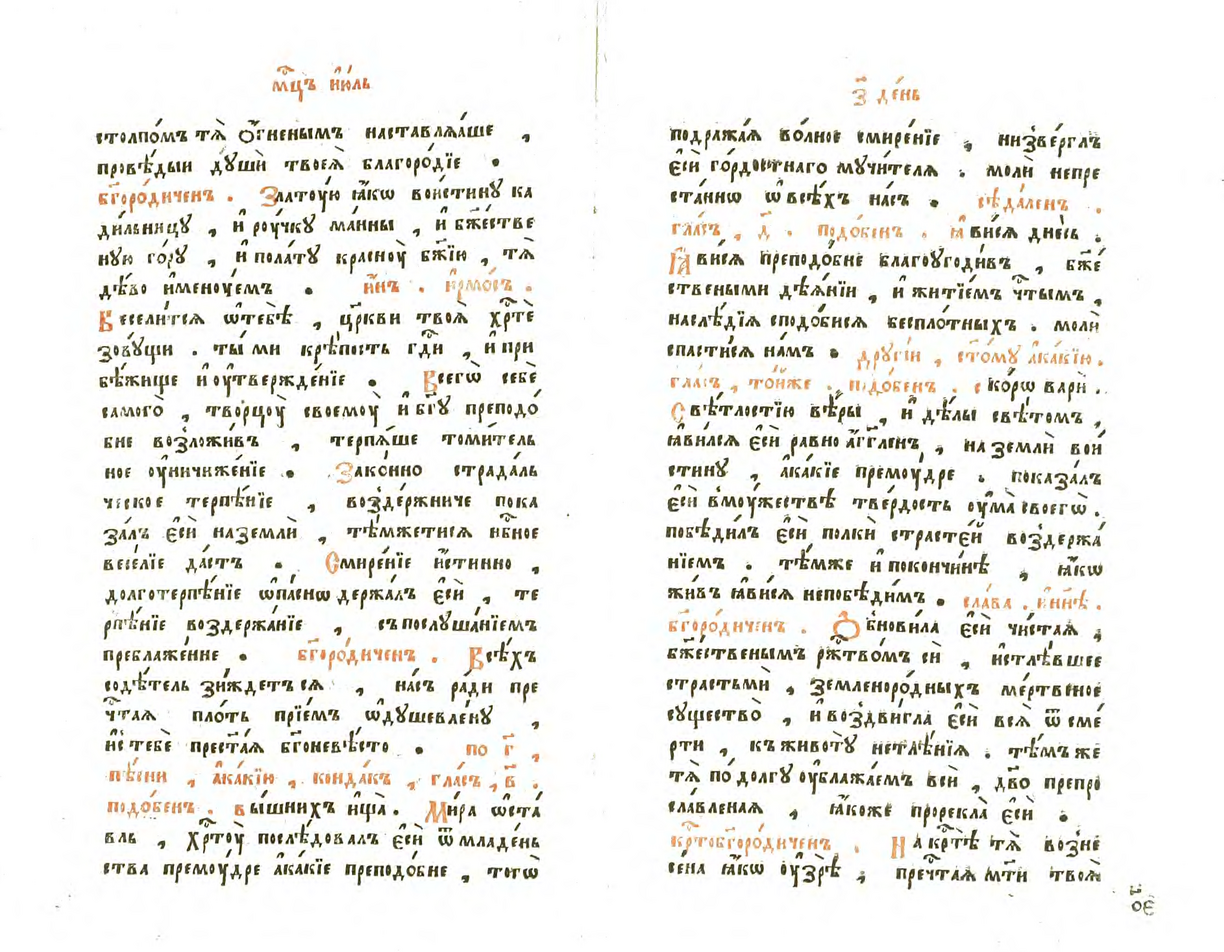 мⷭ҇цъ і҆ю́ль
столпо́мъ тѧ̀ ѻ҆́гненымъ наставлѧ́ше ,
прове́дыи дꙋшѝ твоеѧ̀ благоро́дїе .
бг҃оро́диченъ . Златꙋ́ю ꙗ҆́кѡ вои́стинꙋ ка
ди́льницꙋ , и҆ рꙋ́чкꙋ ма́нны , и҆ бж҃е́стве
нꙋю го́рꙋ , и҆ пола́тꙋ красноу̀ бж҃їю , тѧ̀
дѣ́во и҆менꙋ́емъ . и҆́нъ . і҆рмо́съ .
Весели́тсѧ ѡ҆тебѣ̀ , цр҃кви твоѧ̀ хрⷭ҇тѐ
зовꙋ́щи . ты̀ ми крѣ́пость гдⷭ҇и , и҆ при
бѣ́жище и҆ ᲂу҆твержде́нїе . Всего̀ себѐ
самого̀ , творцꙋ̀ своемꙋ̀ и҆ бг҃ꙋ преподо́
бне возложи́въ , терпѧ́ше томи́тель
ное ᲂу҆ничиже́нїе . Зако́нно страда́ль
ческое терпѣ́нїе , возде́ржниче пока
за́лъ є҆сѝ наземлѝ , тѣ́мжетисѧ нб҃ное
весе́лїе да́стъ . Смире́нїе и҆́стинно ,
долготерпѣ́нїе ѡ҆па́снѡ держа́лъ є҆сѝ , те
рпѣ́нїе воздержа́нїе , съпослꙋша́нїемъ
преблаже́нне . бг҃оро́диченъ . Всѣ́хъ
содѣ́тель зи́ждетъсѧ , на́съ ра́ди пре
чⷭ҇таѧ пло́ть прїе́мъ ѡ҆дꙋшевле́нꙋ ,
ис тебѐ прест҃а́ѧ бг҃оневѣ́сто . по г҃ ,
пѣ́сни , а҆ка́кїю , конда́къ , гла́съ , в҃ .
подо́бенъ . вы́шнихъ ища̀ . Ми́ра ѡ҆ста́
вль , Хрⷭ҇тꙋ̀ послѣ́довалъ є҆сѝ ѿмладе́нь
ства премꙋ́дре а҆ка́кїе преподо́бне , тогѡ̀
з҃ де́нь
подража́ѧ во́лное смире́нїе , низве́рглъ
є҆сѝ го́рдостнаго мꙋчи́телѧ . молѝ непре
ста́ннѡ ѡ҆всѣ́хъ на́съ . сѣда́ленъ .
гла́съ , д҃ . подо́бенъ . ꙗ҆ви́сѧ дне́сь .
Ꙗ҆ви́сѧ преподо́бне благоᲂугоди́въ , бж҃е́
ствеными дѣѧ́нїи , и҆ житїе́мъ чⷭ҇тымъ ,
наслѣ́дїѧ сподо́бисѧ бесплотных . молѝ
спасти́сѧ на́мъ . дрꙋгі́и , ст҃о́мꙋ а҆ка́кїю .
гла́съ , то́йже . подо́бенъ . ско́рѡ варѝ .
Свѣ́тлостїю вѣ́ры , и҆ дѣ́лы свѣ́томъ ,
ꙗ҆ви́лсѧ є҆сѝ равно а҆́гг҃ленъ , на землѝ вои́
стинꙋ , а҆ка́кїе премꙋ́дре . показа́лъ
є҆сѝ вмꙋ́жествѣ тве́рдость ᲂу҆ма̀ своегѡ̀ .
побѣди́лъ є҆сѝ полкѝ страсте́й воздержа́
нїемъ . тѣ́мже и҆ покончи́нѣ , ꙗ҆́кѡ
жи́въ ꙗ҆ви́сѧ непобѣди́мъ . сла́ва . и҆ нн҃ѣ .
бг҃оро́диченъ . Ѻ҆бнови́ла є҆сѝ чи́стаѧ ,
бж҃е́ственымъ рж҃тво́мъ си , и҆стлѣ́вшее
страстьмѝ , земленоро́дныхъ ме́ртвеное
сꙋщество̀ , и҆ воздви́гла є҆сѝ всѧ̀ ѿ сме́
рти , къживотꙋ̀ нетлѣ́нїѧ . тѣ́мъже
тѧ̀ по до́лгꙋ ᲂу҆блажа́емъ всѝ , дв҃о препро
сла́вленаѧ , ꙗ҆́коже прорекла̀ є҆сѝ .
крⷭ҇тобг҃оро́диченъ . На крⷭ҇тѣ̀ тѧ̀ возне
се́на ꙗ҆́кѡ ᲂу҆зрѣ̀ , пречⷭ҇таѧ мт҃и твоѧ̀